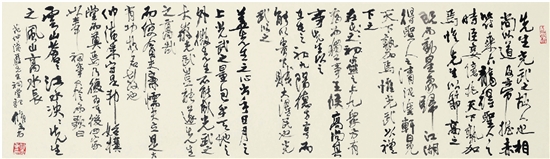 先生光武之故人也相
尚以道及帝握赤
符乘六龍得聖人之
時臣妾億兆天下孰加
焉惟先生以節高之
既而動星象歸江湖
得聖人之清泥塗軒冕
天下孰加焉惟光武以禮
下之
在蠱之上九眾方有
為而獨不事王侯高尚其
事先生以之在屯
之初九陽德方亨而
能以貴下賤大得民也光
武以之
蓋先生之心出乎日月之
上光武之量包乎天地之
外微先生不能成光武
之大微光武豈能遂先生
之高哉
而使貪夫廉懦夫立是大
有功於名教也
仲淹來守是邦始構
堂而奠焉乃復為其後者四家
以奉祠事又從而歌曰
雲山蒼蒼江水泱泱先生
之風山高水長
范仲淹嚴先生祠堂記